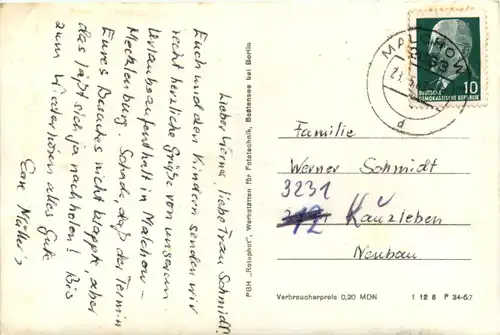 Lieber Werner, liebe Frau Schmidt,
Euch und den Kindern senden wir
recht herzliche Grüße von unserem
Urlaubsaufenthalt in Malchow-
Mecklenburg. Schade, daß der Termin
Eures Besuches nicht klappte, aber
das läßt sich ja nachholen! Bis
zum Wiederhören alles Gute
Eure Müller's
PGH „Rotophot", Werkstätten für Fototechnik, Bestensee bei Berlin
MALCHOW
d
DEUTSCHE
DEMOKRATISCHE REPUBLIK
10
Familie
Werner Schmidt
3231
Kauzleben
Neubau
Verbraucherpreis 0,20 MDN
1 12 5 P 34-67